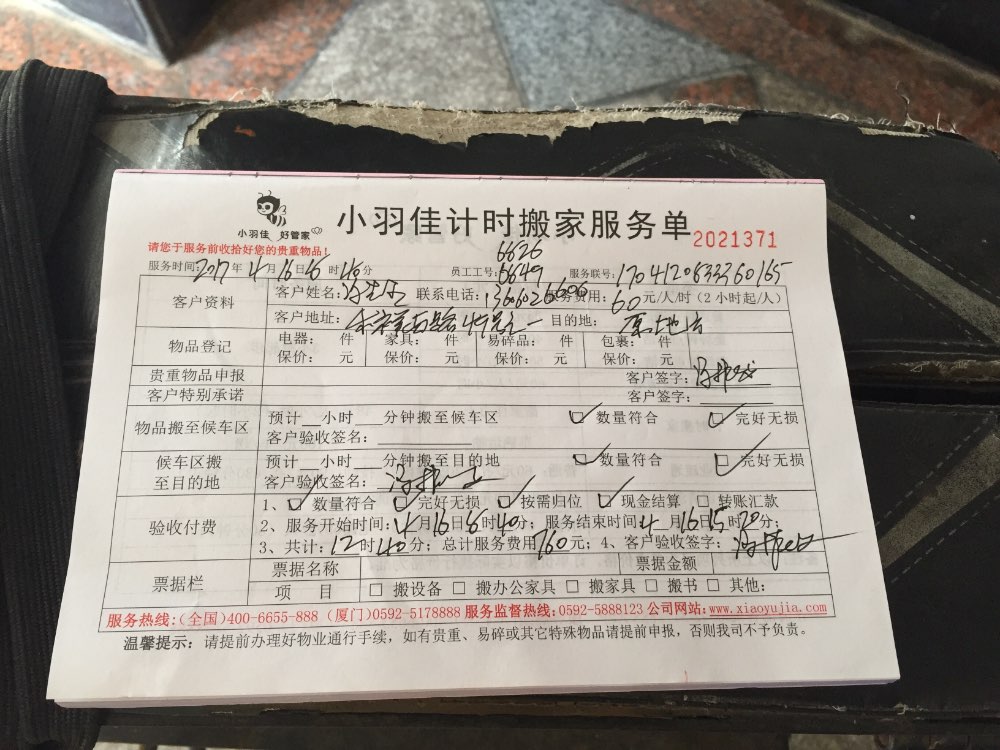 小羽佳 好管家
小羽佳计时搬家服务单 2021371
请您于服务前收拾好您的贵重物品！
6626
服务时间：2017年4月16日 时40分 员工工号：6649 服务联号：170412083336 0165
客户资料 客户姓名： 联系电话： 服务费用：60元/人/时（2小时起/人）
客户地址： 目的地：原地
物品登记 电器： 件 家具： 件 易碎品： 件 包裹： 件
保价： 元 保价： 元 保价： 元 保价： 元
贵重物品申报 客户签字：
客户特别承诺 客户签字：
物品搬至候车区 预计__小时___分钟搬至候车区 数量符合 完好无损
客户验收签名：
候车区搬至目的地 预计__小时___分钟搬至目的地 数量符合 完好无损
客户验收签名：
验收付费 1、数量符合 完好无损 按需归位 现金结算 转账汇款
2、服务开始时间：4月16日8时40分；服务结束时间4月16日15时20分；
3、共计：12时40分；总计服务费用760元；4、客户验收签字：
票据栏 票据名称 票据金额
项 目 搬设备 搬办公家具 搬家具 搬书 其他：
服务热线：(全国)400-6655-888 (厦门)0592-5178888 服务监督热线：0592-5888123 公司网站：www.xiaoyujia.com
温馨提示：请提前办理好物业通行手续，如有贵重、易碎或其它特殊物品请提前申报，否则我司不予负责。